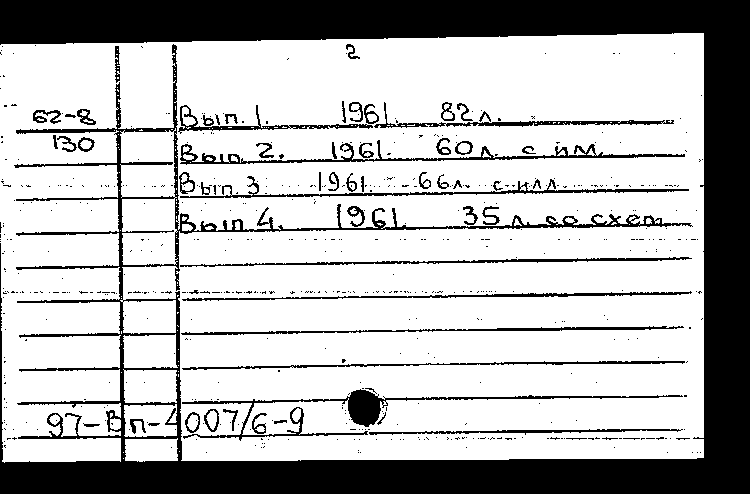 2
62-8 Вып. 1. 1961. 82 л.
130
Вып 2. 1961. 60 л с ил.
Вып 3 1961. 66 л. с илл.
Вып 4. 1961. 35 л со схем
97-Вп-4007/6-9